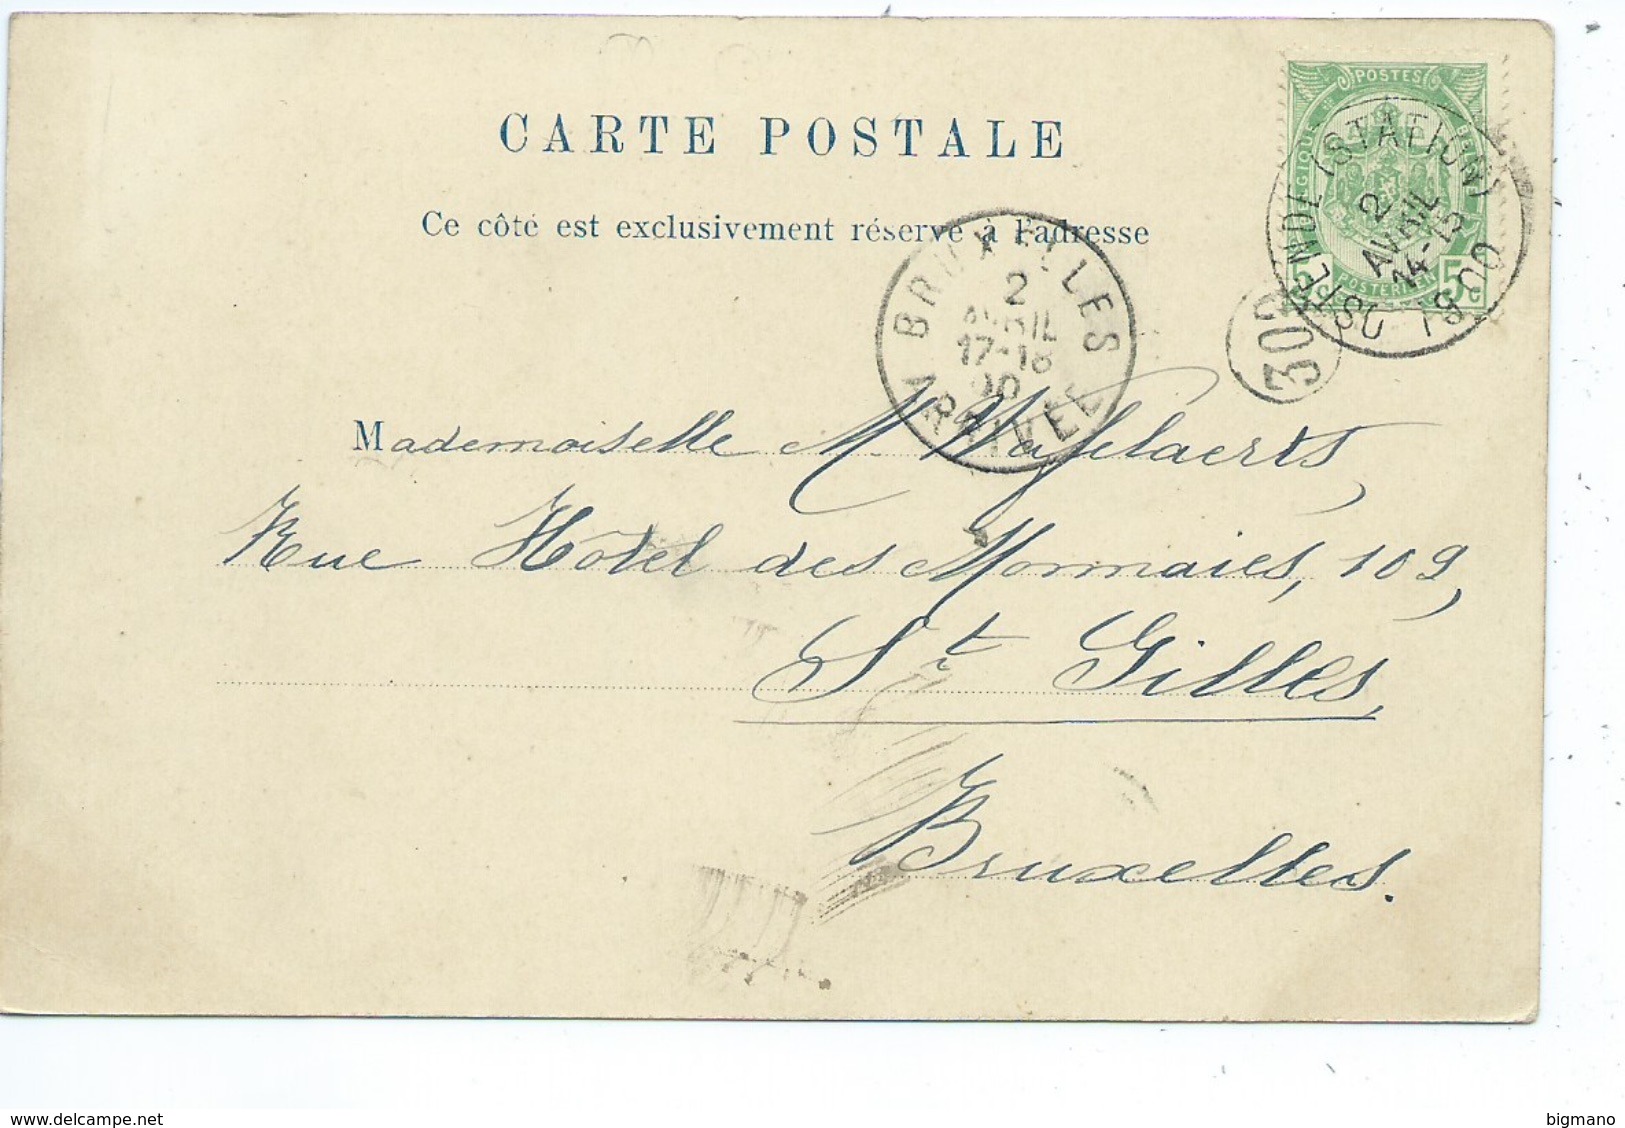 POSTES
BELGIQUE
POSTERIJEN
5c 5c
OSTENDE (STATION)
2
AVRIL
14-15
1900
302
CARTE POSTALE
Ce côté est exclusivement réservé à l'adresse
BRUXELLES
2
AVRIL
17-18
1900
ARRIVÉE
Mademoiselle M. Wafelaerts,
Rue Hôtel des Monnaies, 109,
St Gilles,
Bruxelles.
delcampe.net
bigmano